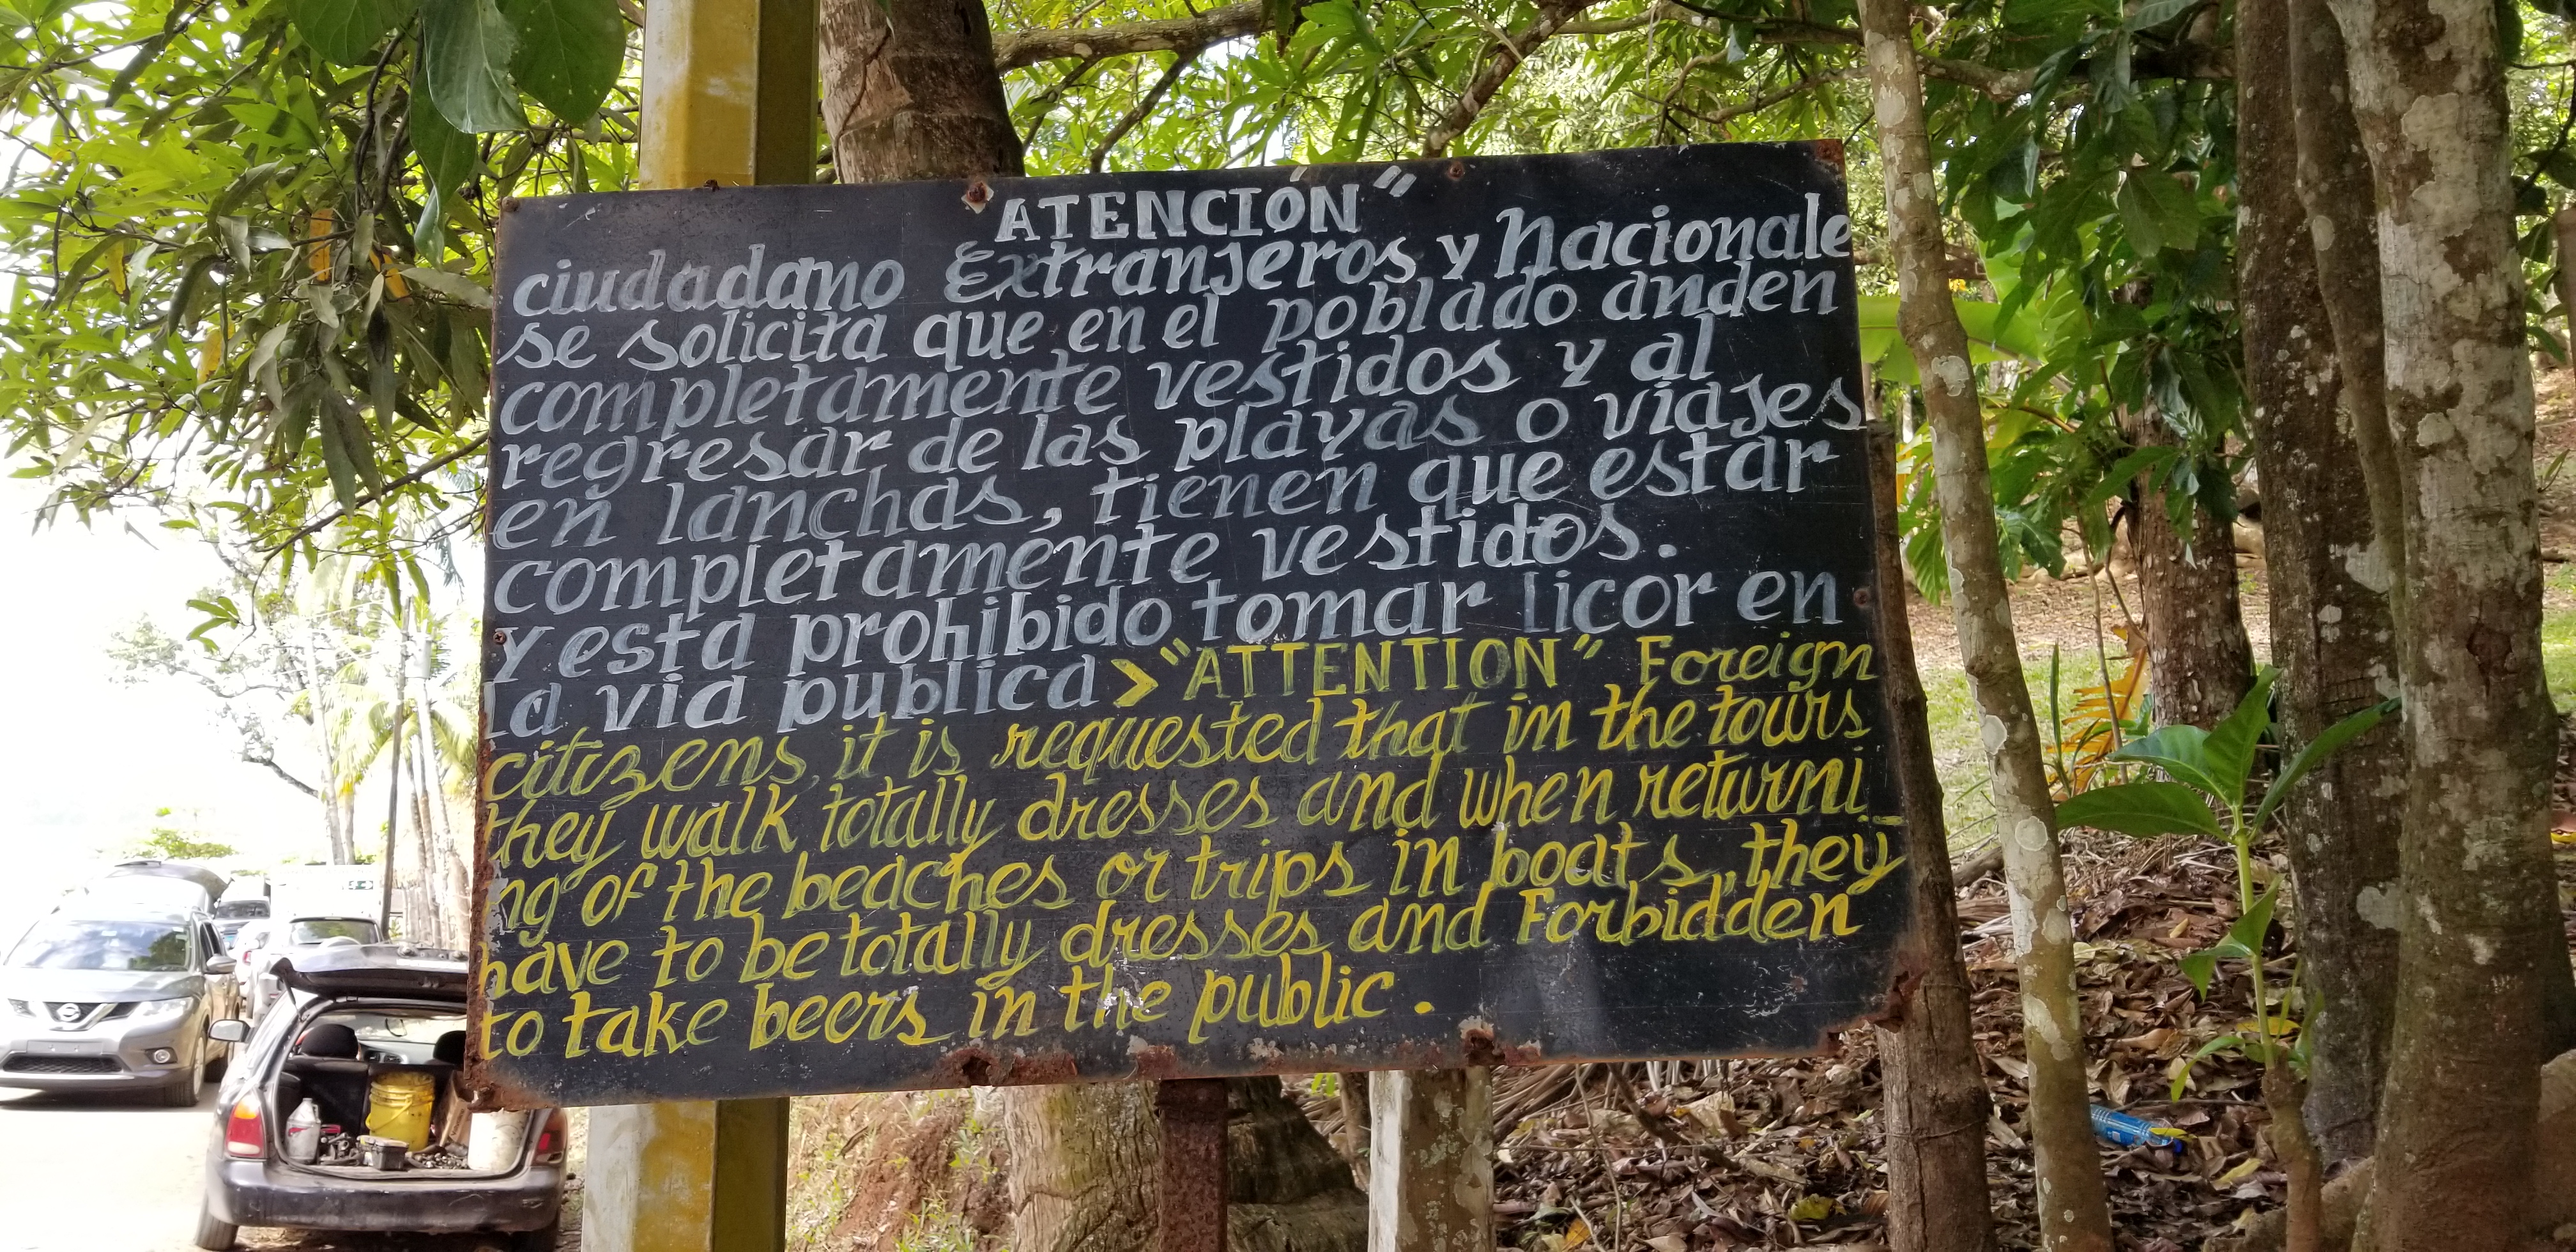 "ATENCIÓN"
ciudadano Extranjeros y Nacionale
se solicita que en el poblado anden
completamente vestidos y al
regresar de las playas o viajes
en lanchas, tienen que estar
completamente vestidos.
y esta prohibido tomar licor en
la via publica > "ATTENTION" Foreign
citizens, it is requested that in the tours
they walk totally dresses and when returni_
ng of the beaches or trips in boats, they
have to be totally dresses and Forbidden
to take beers in the public.